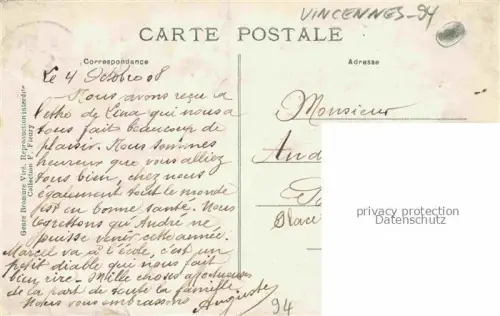 VINCENNES-94
CARTE POSTALE
Correspondance
Adresse
Le 4 Octobre 08
Nous avons reçu à
l'etho de Lina qui nous a
tous faits beaucoup de
plaisir. Nous sommes
heureux que vous alliez
tous bien, chez nous
également tout le monde
est en bonne santé. Nous
regrettons qu'André ne
puisse venir cette année.
Marcel va à l'école, c'est un
petit diable qui nous fait
bien rire. Mille choses affectueuses
de la part de toute la famille
Nous vous embrassons
Auguste
Monsieur
And
Place
94
privacy protection
Datenschutz
Genre Bromure Vied. Reproduction interdite
Collection F. Fleury